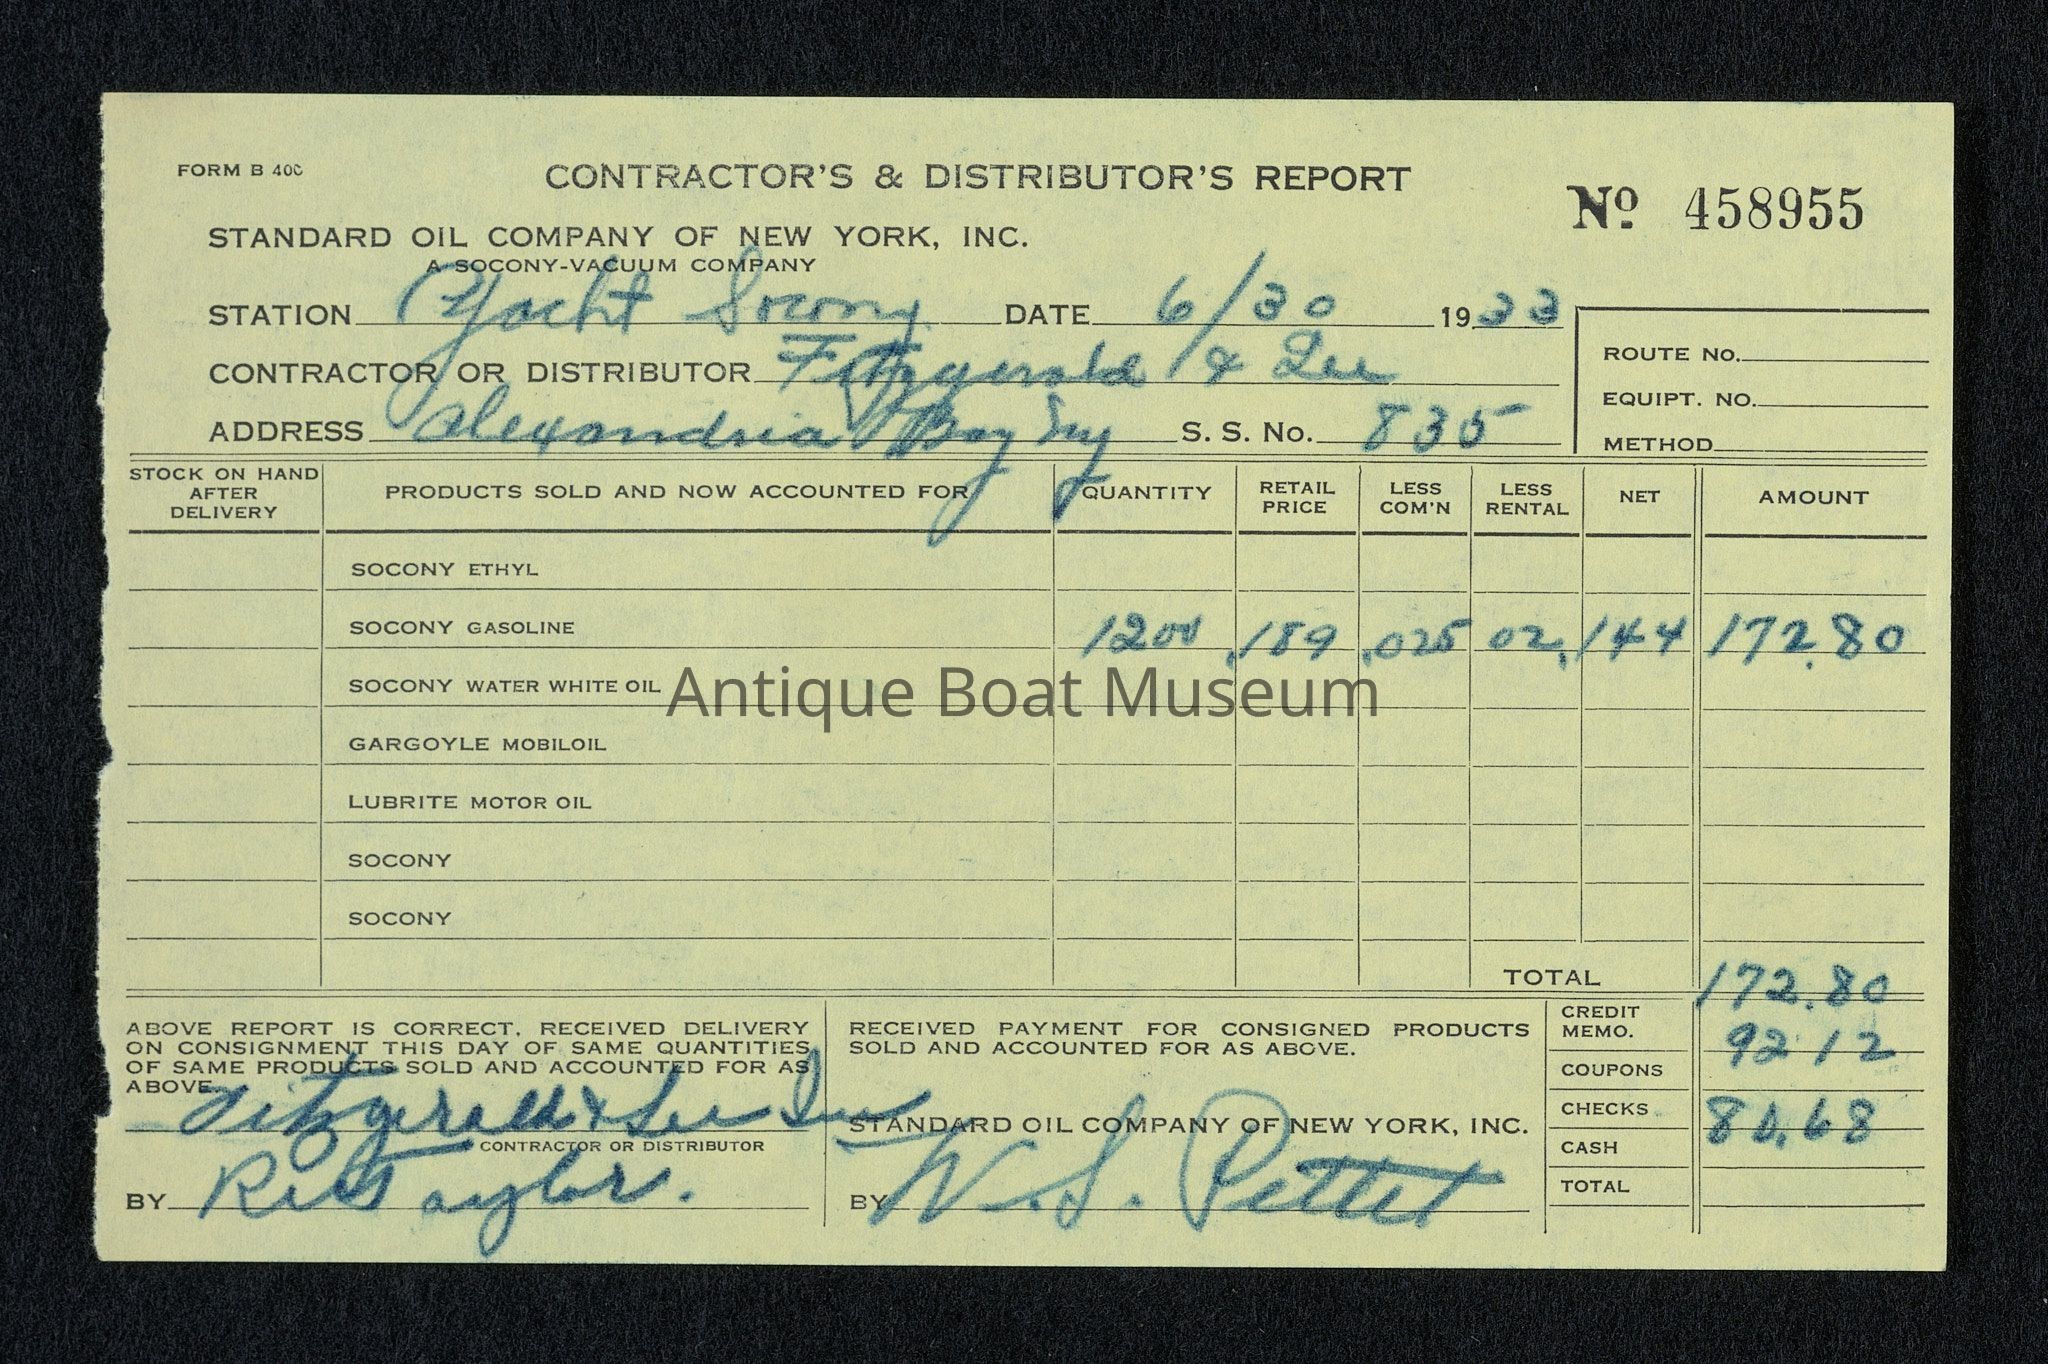 FORM B 400
CONTRACTOR'S & DISTRIBUTOR'S REPORT
No 458955
STANDARD OIL COMPANY OF NEW YORK, INC.
A SOCONY-VACUUM COMPANY
STATION Yacht Socony DATE 6/30 1933
CONTRACTOR OR DISTRIBUTOR Fitzgerald & Lee
ADDRESS Alexandria Bay Ny S. S. No. 835
ROUTE No.
EQUIPT. NO.
METHOD
STOCK ON HAND AFTER DELIVERY PRODUCTS SOLD AND NOW ACCOUNTED FOR QUANTITY RETAIL PRICE LESS COM'N LESS RENTAL NET AMOUNT
SOCONY ETHYL
SOCONY GASOLINE 1200 .189 .025 02 .144 172.80
SOCONY WATER WHITE OIL
Antique Boat Museum
GARGOYLE MOBILOIL
LUBRITE MOTOR OIL
SOCONY
SOCONY
TOTAL 172.80
ABOVE REPORT IS CORRECT. RECEIVED DELIVERY
ON CONSIGNMENT THIS DAY OF SAME QUANTITIES
OF SAME PRODUCTS SOLD AND ACCOUNTED FOR AS
ABOVE.
Fitzgerald & Lee Inc
CONTRACTOR OR DISTRIBUTOR
BY Taylor.
RECEIVED PAYMENT FOR CONSIGNED PRODUCTS
SOLD AND ACCOUNTED FOR AS ABOVE.
STANDARD OIL COMPANY OF NEW YORK, INC.
BY W. S. Pettet
CREDIT MEMO. 92 12
COUPONS
CHECKS 80.68
CASH
TOTAL